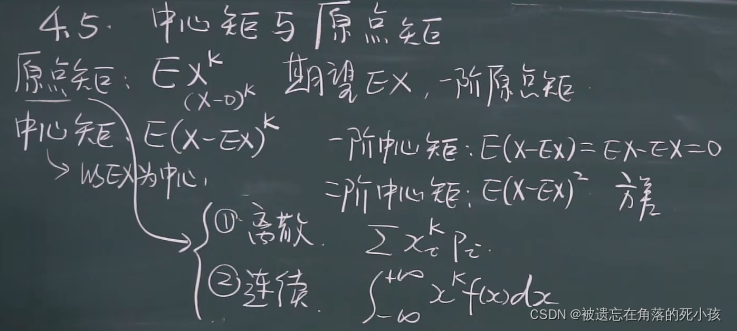 4.5. 中心矩与原点矩
原点矩: EX^k 期望EX, 一阶原点矩.
(X-0)^k
中心矩 E(X-EX)^k 一阶中心矩: E(X-EX)=EX-EX=0
↳ 以EX为中心, 二阶中心矩: E(X-EX)^2 方差
① 离散. ∑x_i^k P_i.
② 连续. ∫_{-∞}^{+∞} x^k f(x)dx
CSDN @被遗忘在角落的死小孩